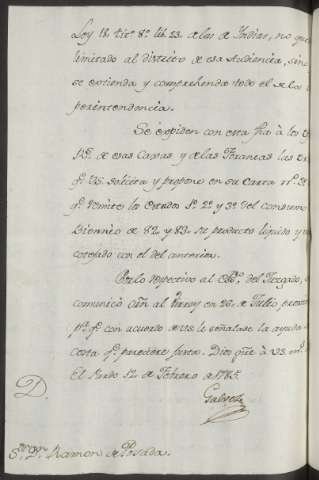 Ley 18. tit.º 8º lib. 23. de las de Indias, no que
limitado al distrito de esa Audiencia, sino
se extienda y comprehenda todo el de la
perintendencia.
Se expiden con esta fha á los
de esas Caxas y de las Foraneas las
q.e VS. solicita y propone en su carta n.º
q.e remite los estados 1º 2º y 3º del consumo
Biennio de 82. y 83. su producto liquido y
cotejado con el del anterior.
Por lo respectivo al del Juzgado,
comunicó al Virrey en 26. de Julio,
p.a q.e con acuerdo de VS. le señalase la ayuda
costa q.e pareciere justa. Dios gûe à VS. m.s
El Pardo 12. de Febrero de 1785.
Galvez
D.
S.or D.n Ramon de Posada.